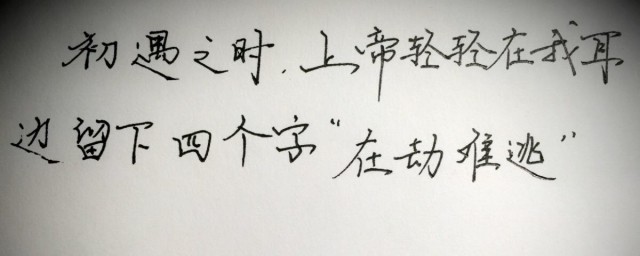 初遇之时,上帝轻轻在我耳
边留下四个字“在劫难逃”